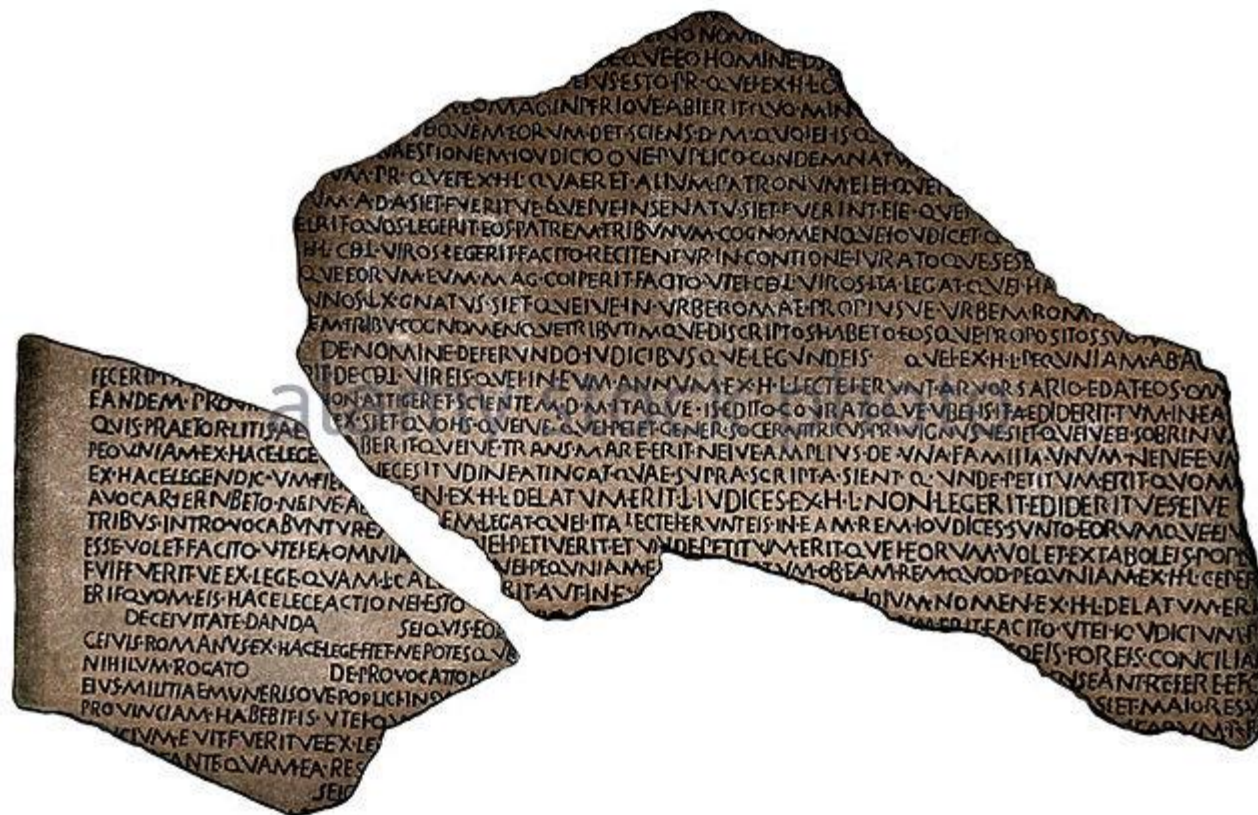 NO NOMI
QVE EO HOMINE D
EIVS ESTO PR·QVEI EX H·L
EO MAG·INPERIOVE ABIERIT QVO MIN
QVEM EORVM DET SCIENS D·M·QVOI EIS
AESTIONEM IOVDICIOQVE PVPLICO CONDEMNATV
VM·PR·QVEI EX H·L·QVAERET ALIVM PATRONVM EIEI
VM·A·D·A·SIET FVERITVE QVEIVE IN SENATV SIET FVERINT EIE·QVEI
ERIT QVOS LEGERIT EOS PATREM TRIBVNVM COGNOMENQVE IOVDICET Q
VIROS LEGERIT FACITO RECITENTVR IN CONTIONE IVRATOQVE SESE
QVE EORVM EVM MAG·COIPERIT FACITO VTEI VIROS ITA LEGAT QVEI HA
NOS LX GNATVS SIET QVEIVE IN VRBE ROMAE PROPIVSVE VRBEM ROM
EM TRIBV COGNOMENQVE TRIBVTIMQVE DISCRIPTOS HABETO EOSQVE PROPOSITOS SVO
DE NOMINE DEFERVNDO IVDICIBVSQVE LEGVNDEIS QVEI EX H·L·PEQVNIAM AB AL
RIT DE VIREIS QVEI IN EVM ANNVM EX H·L·LECTEI ERVNT ARVORSARIO EDAT EOS OM
NON ATTIGERET SCIENTEM D·M·ITAQVE IS EDITO IOVRATOQVE VBEI IS ITA EDIDERIT TVM IN EA
EX SIET QVOIVS QVEIVE GENER SOCER VITRICVS PRIVIGNVSVE SIET QVEIVE EI SOBRINV
BERIT QVEIVE TRANS MARE ERIT NEIVE AMPLIVS DE VNA FAMILIA VNVM NEIVE EVM
NECESITVDINE ATINGAT QVAE SVPRA SCRIPTA SIENT Q·VNDE PETITVM ERIT QVOM
EN EX H·L·DELATVM ERIT L IVDICES EX H·L·NON LEGERIT EDIDERITVE SEIVE
EM LEGAT QVEI ITA LECTEI ERVNT EIS IN EAM REM IOVDICES SVNTO EORVMQVE EI
EI PETIVERIT ET VNDE PETITVM ERIT QVEI EORVM VOLET EX TABOLEIS POP
VEI PEQVNIAM E TVM OB EAM REM QVOD PEQVNIAM EX H·L·CEPE
RIT AVT IN E IOIVM NOMEN EX H·L·DELATVM ER
RIT FACITO VTEI IOVDICIVM
OEIS·FOREIS·CONCILIA
NSEANT REFERE EI
SIET MAIORES
FECERIT
EANDEM·PROVIN
QVIS·PRAETOR·LITIS AE
PEQVNIAM·EX·HACE LEGE
EX·HACE LEGE NDIC·VM FIE
AVOCARIER NBETO·NEIVE A
TRIBVS·INTRO VOCABVNTVR EX
ESSE VOLET FACITO·VTEI EA OMNIA
FVIT FVERITVE EX LEGE QVAM L·CAL
ERIT QVOM EIS HACE LEGE ACTIO NEI ESTO
DE CEIVITATE DANDA SEI QVIS EOR
CEIVIS ROMANVS EX HACE LEGE FIET NEPOTESQVE
NIHILVM ROGATO DE PROVOCATION
EIVS MILITIAE MVNERISQVE POPLICI IN
PROVINCIAM HABEBIT IS VTEI
CIVM E VIT FVERITVE EX LE
ANTEQVAM EA RES
SEI Q